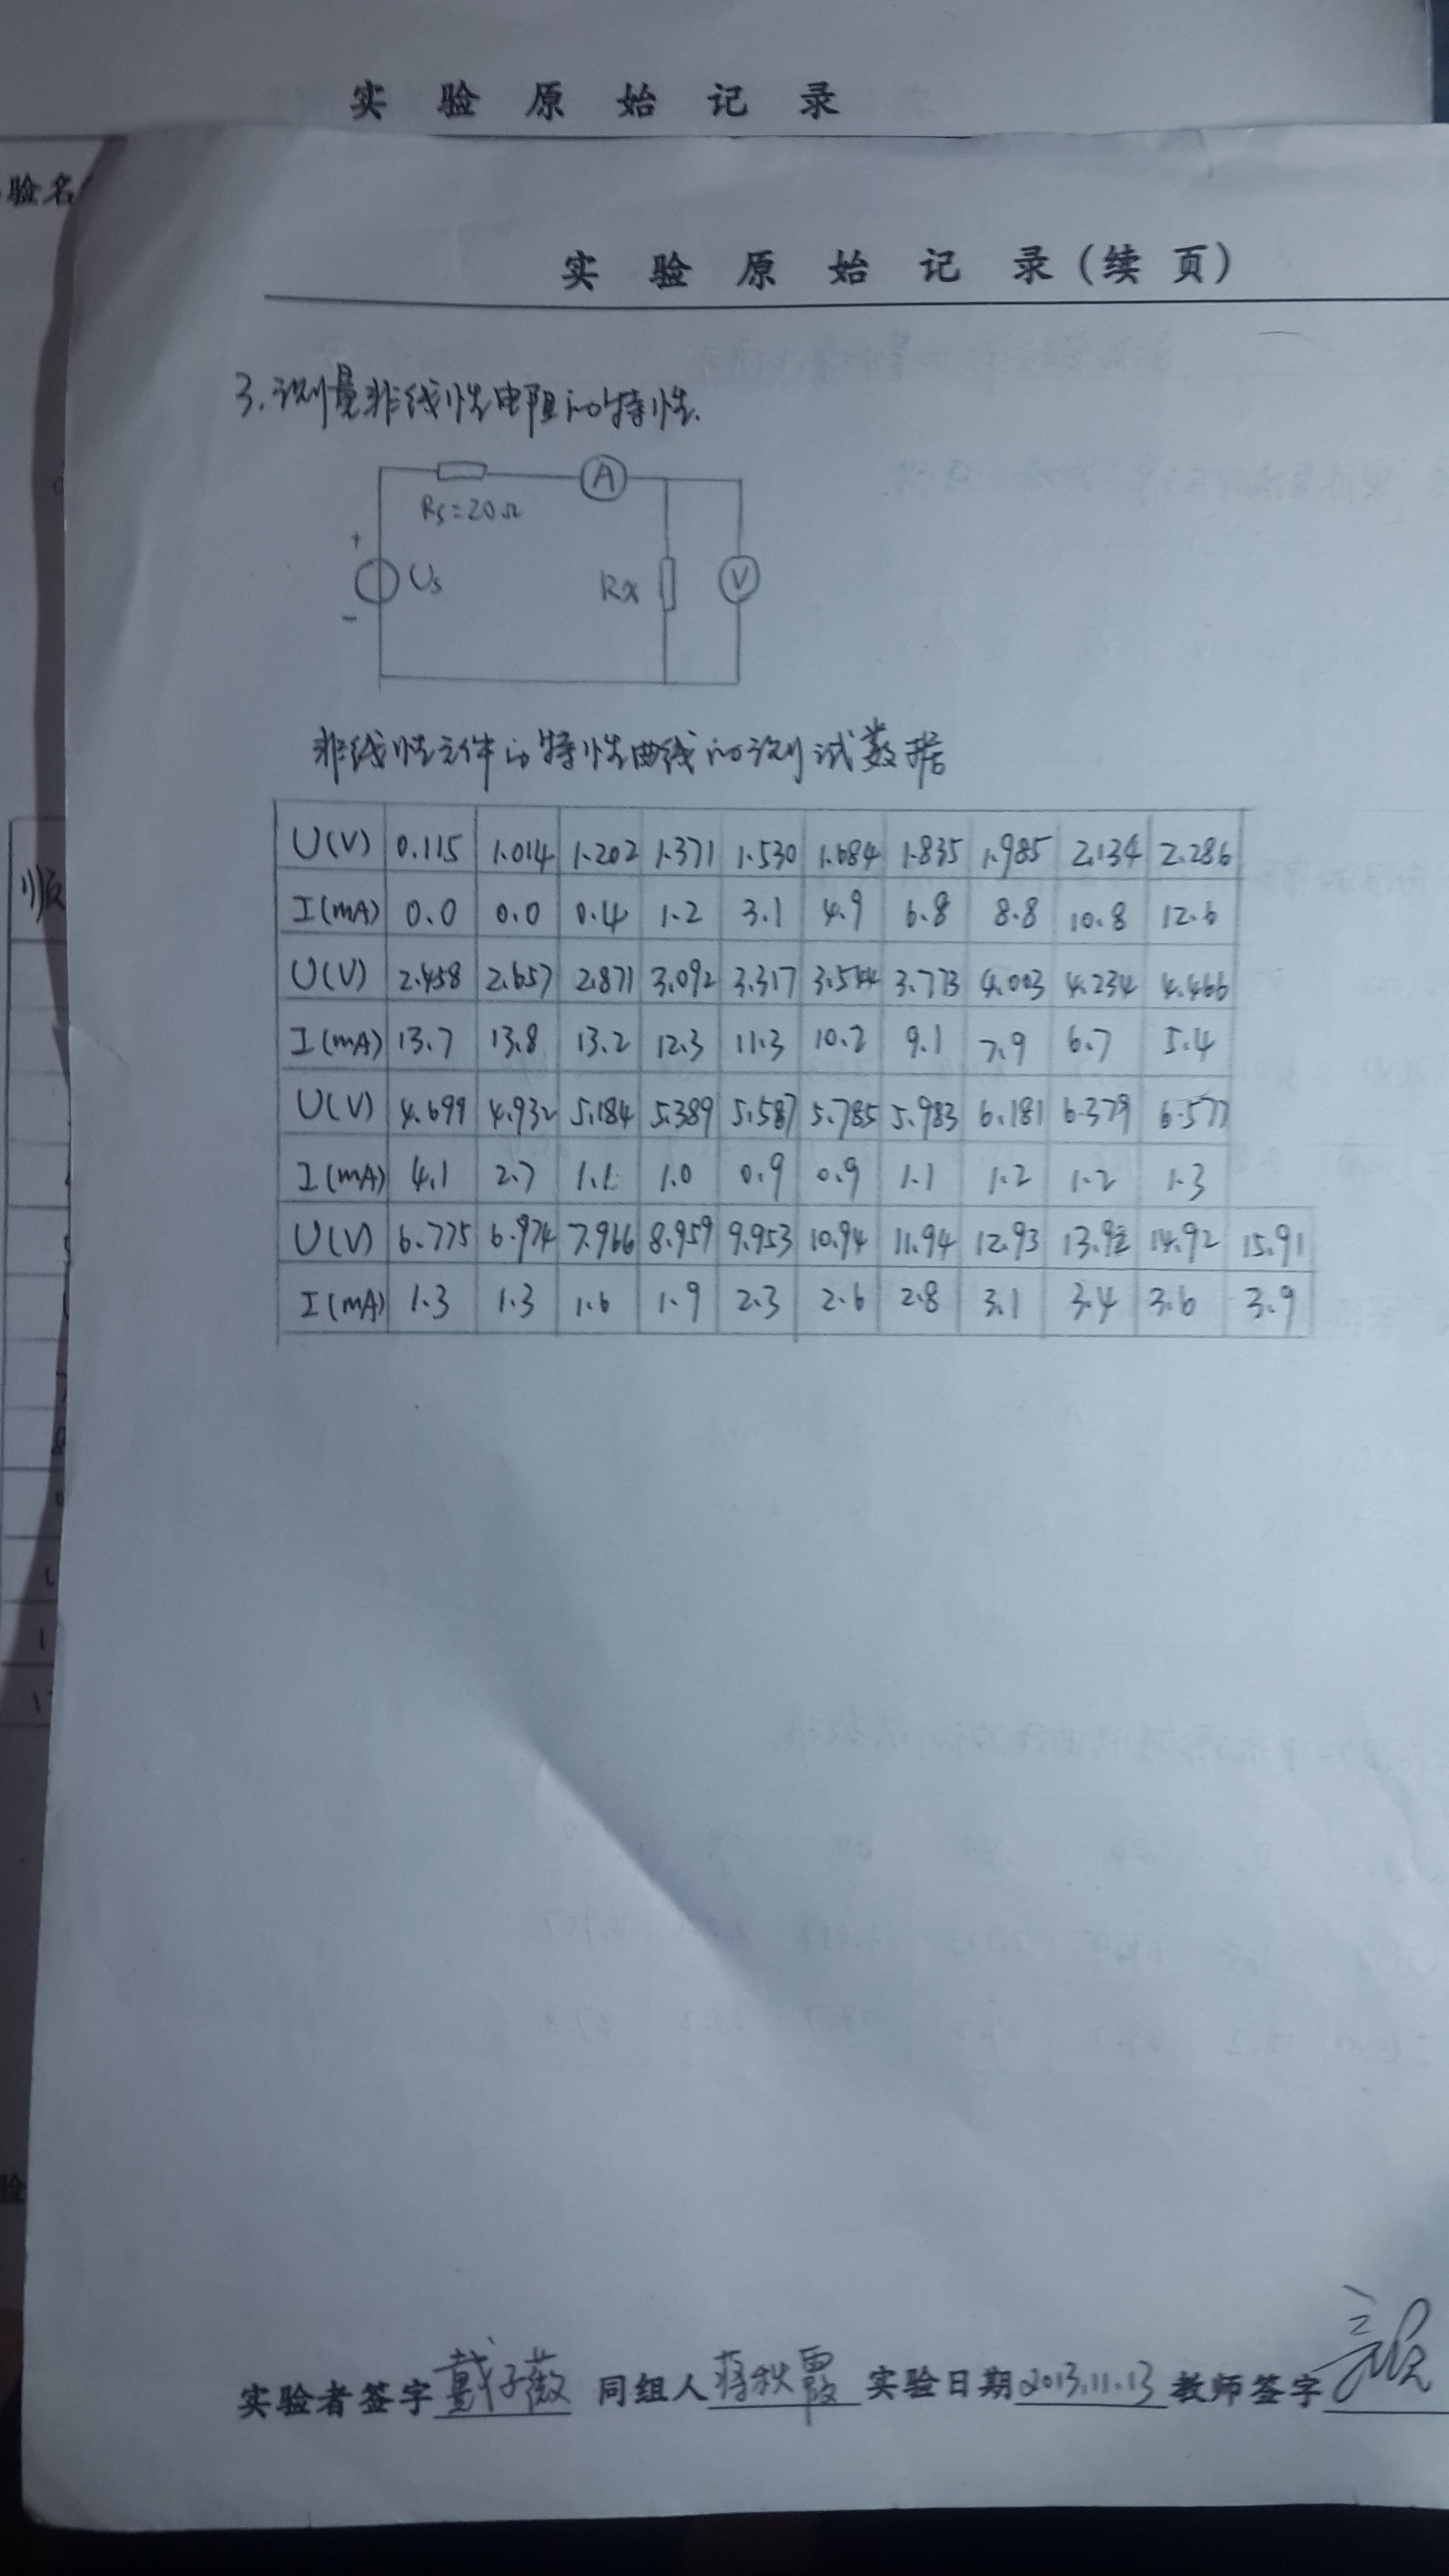 实验原始记录
验名
实验原始记录(续页)
3.测量非线性电阻的特性.
A
Rs=20Ω
+
Us
Rx
V
-
非线性元件的特性曲线的测试数据
U(V) 0.115 1.014 1.202 1.371 1.530 1.684 1.835 1.985 2.134 2.286
I(mA) 0.0 0.0 0.4 1.2 3.1 4.9 6.8 8.8 10.8 12.6
U(V) 2.458 2.657 2.871 3.092 3.317 3.544 3.773 4.003 4.234 4.466
I(mA) 13.7 13.8 13.2 12.3 11.3 10.2 9.1 7.9 6.7 5.4
U(V) 4.699 4.932 5.184 5.389 5.587 5.785 5.983 6.181 6.379 6.577
I(mA) 4.1 2.7 1.1 1.0 0.9 0.9 1.1 1.2 1.2 1.3
U(V) 6.775 6.974 7.966 8.959 9.953 10.94 11.94 12.93 13.92 14.92 15.91
I(mA) 1.3 1.3 1.6 1.9 2.3 2.6 2.8 3.1 3.4 3.6 3.9
实验者签字 戴子薇 同组人 蒋秋霞 实验日期 2013.11.13 教师签字